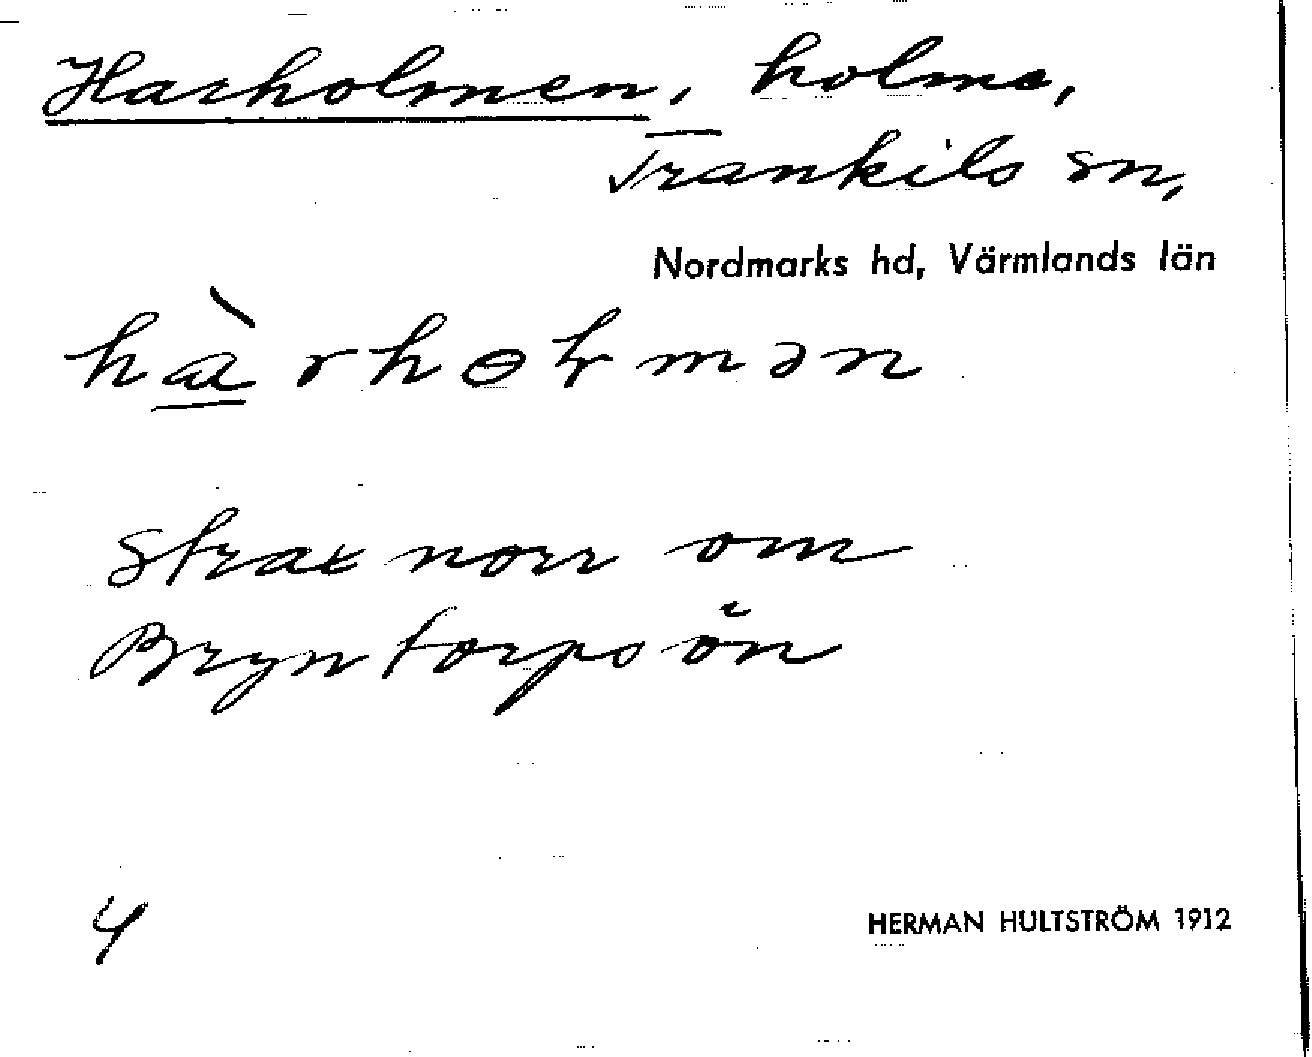 Harholmen, holme,
Trankils sn,
Nordmarks hd, Värmlands län
hàrhɵɫmən
Strax norr om
Bryntorpsön
4
HERMAN HULTSTRÖM 1912